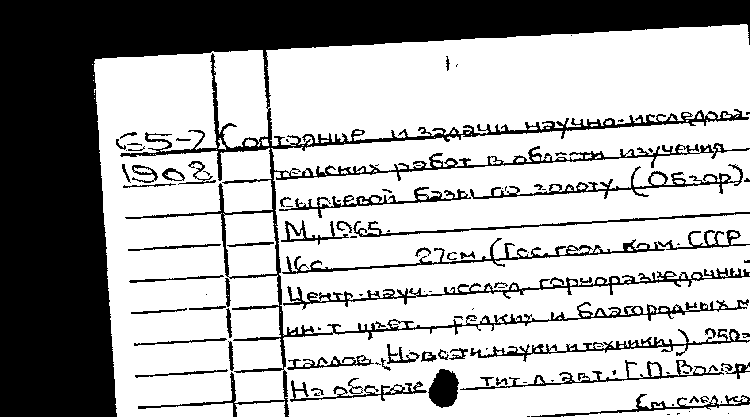 1.
65-7 Состояние и задачи научно-исследова-
1902 тельских работ в области изучения
сырьевой базы по золоту. (Обзор).
М., 1965.
16с. 27см. (Гос. геол. ком. СССР
Центр. науч. исслед. горноразведочный
ин-т цвет., редких и благородных м
таллов. Новости науки и техники). 250
На обороте тит. л. авт.: Г.П.
См. след. ка